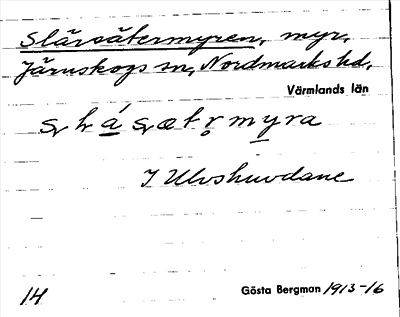 Slårsätermyren, myr,
Järnskogs sn, Nordmarks hd,
Värmlands län
I Ulvshuvdane
14
Gösta Bergman 1913-16